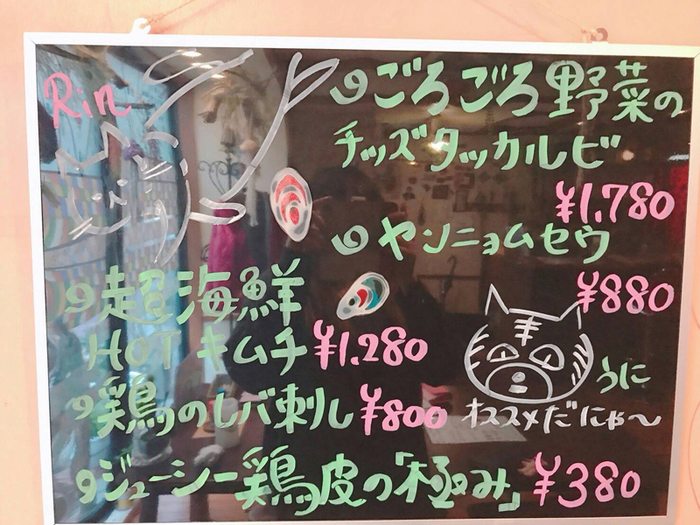 Rin
ごろごろ野菜の
チッズタッカルビ
¥1,780
ヤンニョムセウ
¥880
超海鮮
HOTキムチ ¥1,280
うに
オススメだにゃ〜
鶏のレバ刺し ¥800
ジューシー鶏皮の「極み」 ¥380